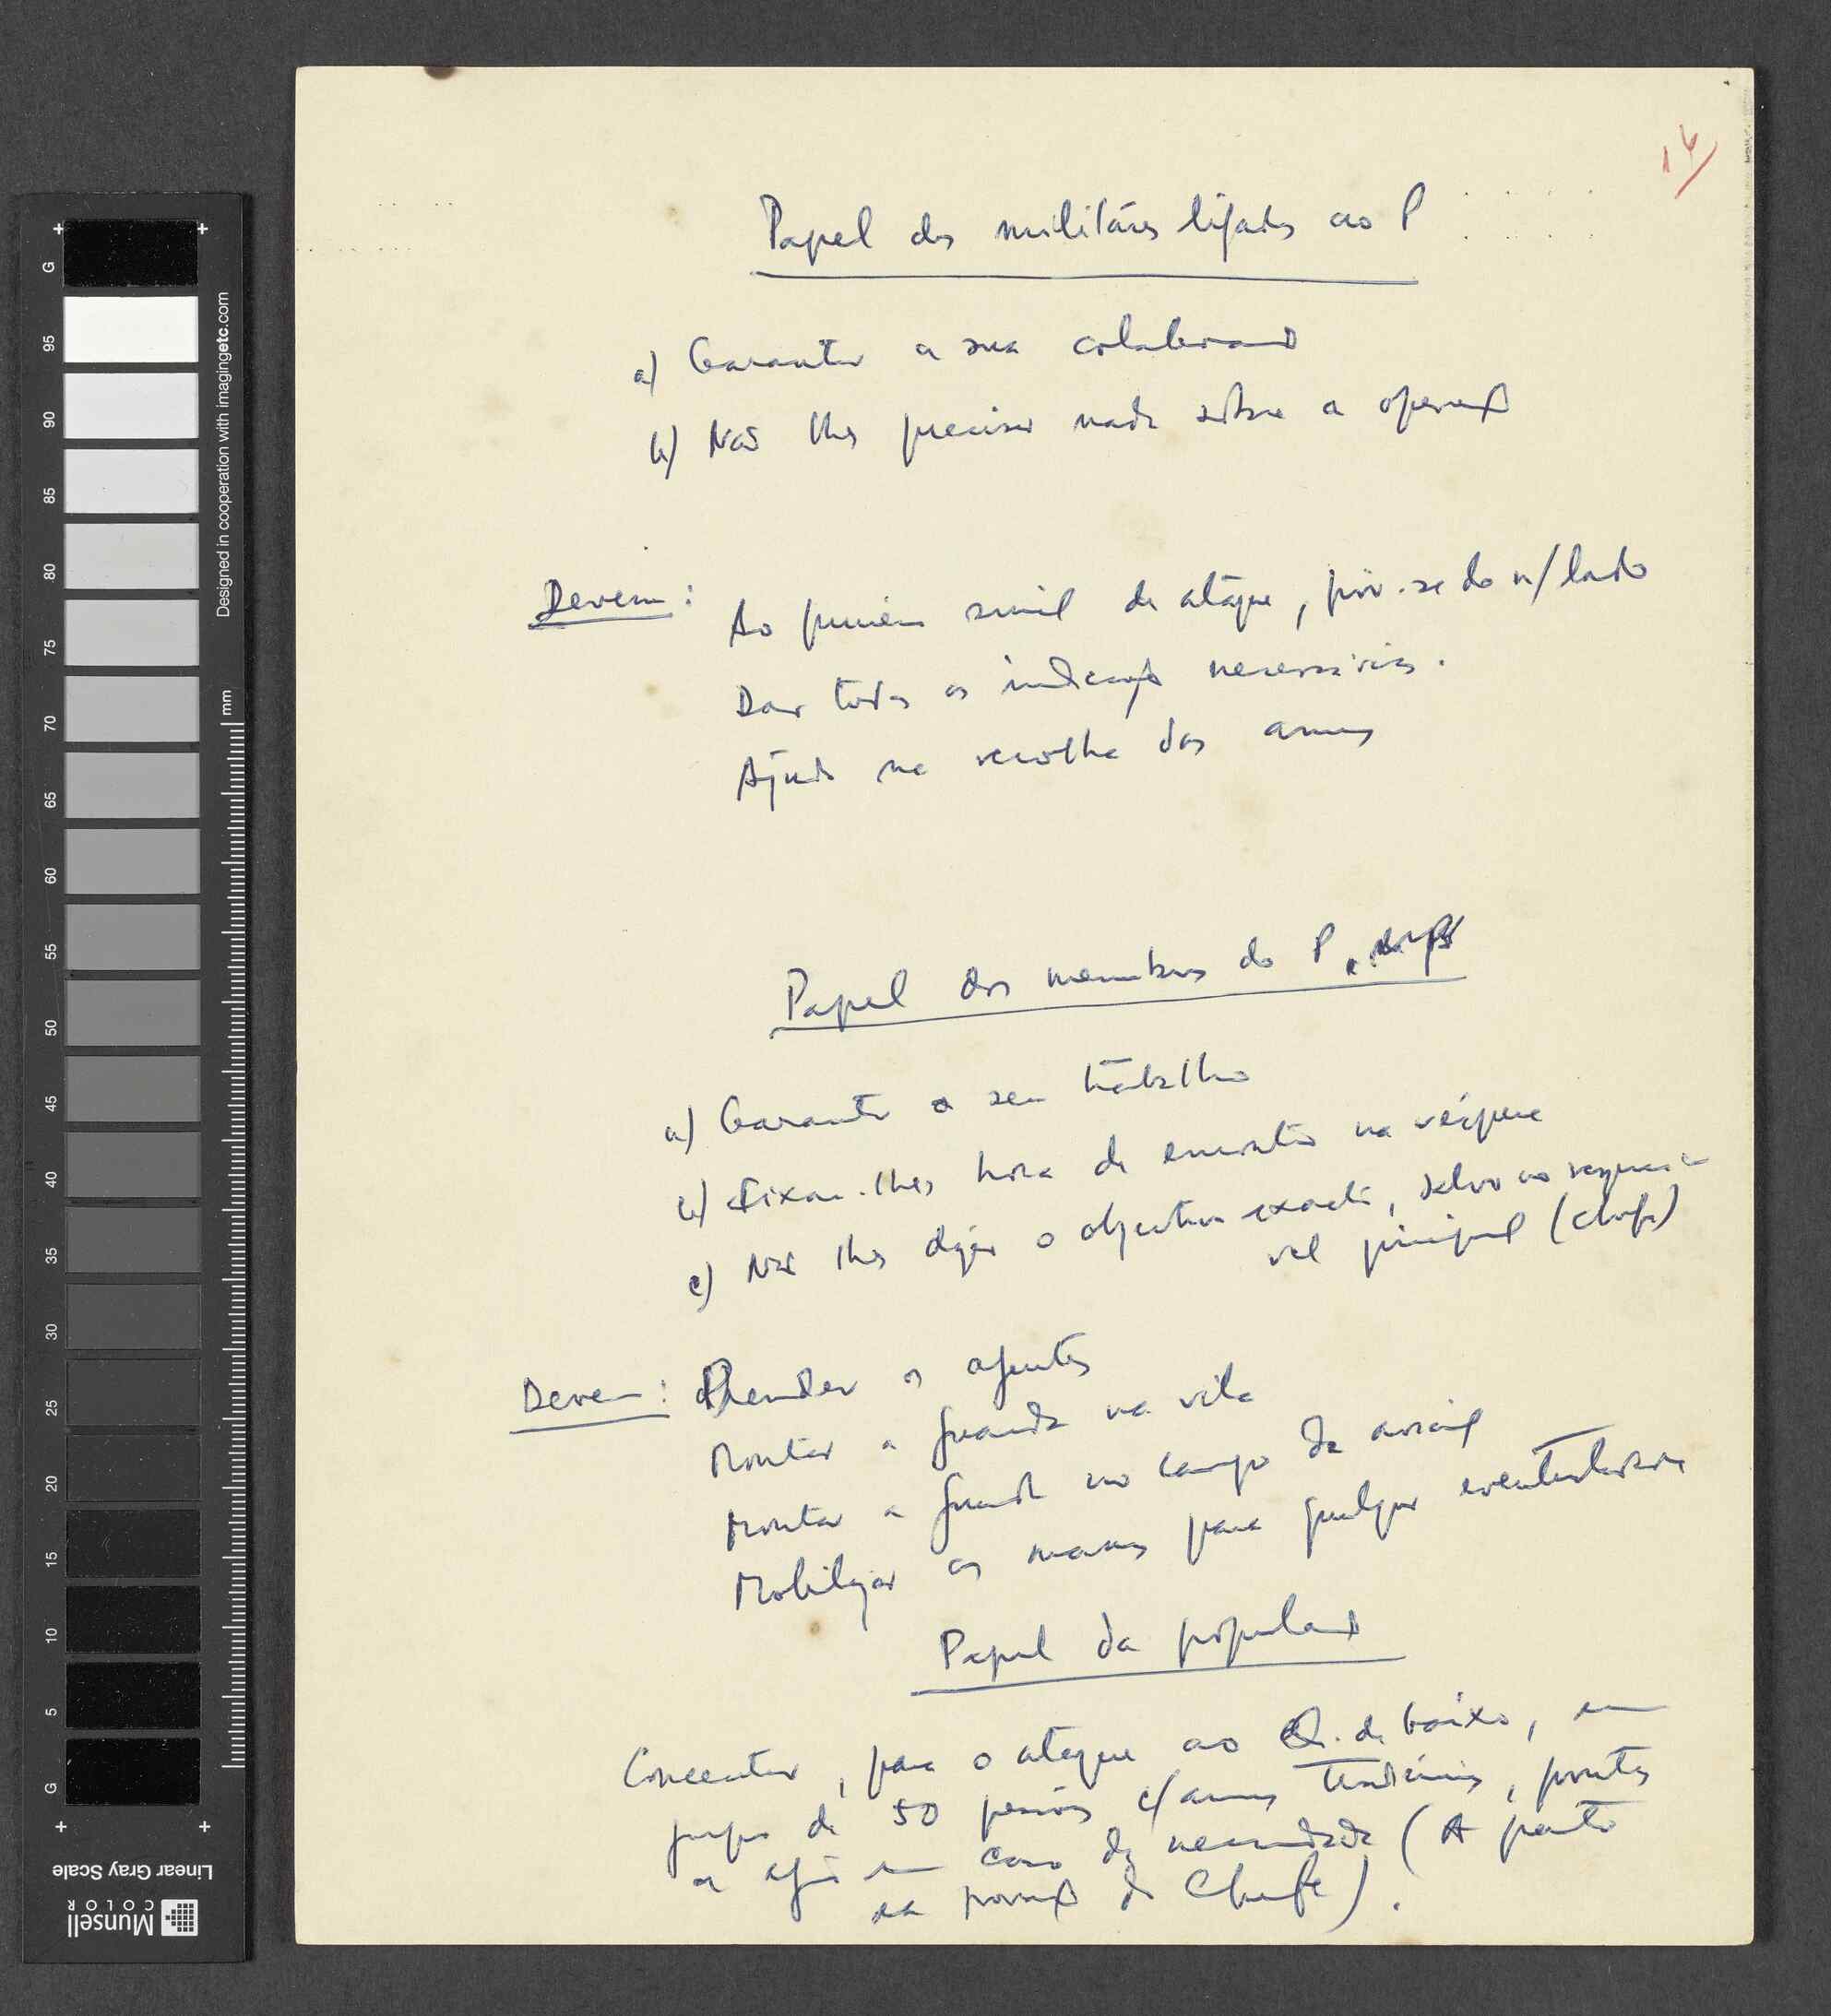 14
Papel dos militares ligados ao P
a) Garantir a sua colaboração
b) Não lhes precisar nada sobre a operação
Devem: Ao primeiro sinal de ataque, pôr-se do n/ lado
Dar todas as indicações necessárias.
Ajuda na recolha das armas
Papel dos membros do P.
a) Garantir o seu trabalho
b) Fixar-lhes hora de encontro na véspera
c) Não lhes dizer o objectivo exacto, salvo ao responsá-
vel principal (chefe)
Devem: Prender os agentes
Montar a guarda na vila
Montar a guarda no campo de aviação
Mobilizar as massas para qualquer eventualidade
Papel da população
Concentrar, para o ataque ao Q. de baixo, um
grupo de 50 pessoas c/ armas tradicionais, prontas
a agir em caso de necessidade (A postos
na povoação do Chefe).
G
95
90
85
80
75
70
65
60
55
50
45
40
35
30
25
20
15
10
5
G
mm
Designed in cooperation with imagingetc.com
Linear Gray Scale
Munsell
COLOR